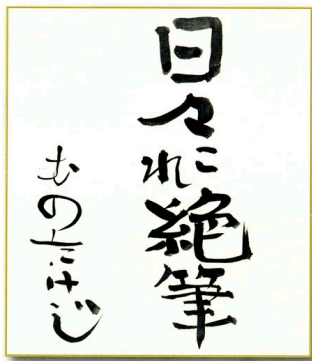 日々これ絶筆
むのたけじ